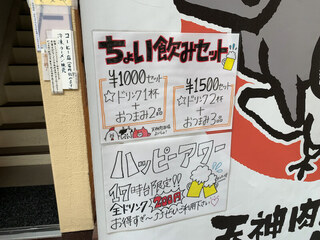 ちょい飲みセット
¥1000セット
☆ドリンク1杯
+
おつまみ2品
¥1500セット
☆ドリンク2杯
+
おつまみ2品
ハッピーアワー
17時台限定!!
全ドリンク200円
お得すぎ〜♪ぜひご利用下さい♡
天神肉